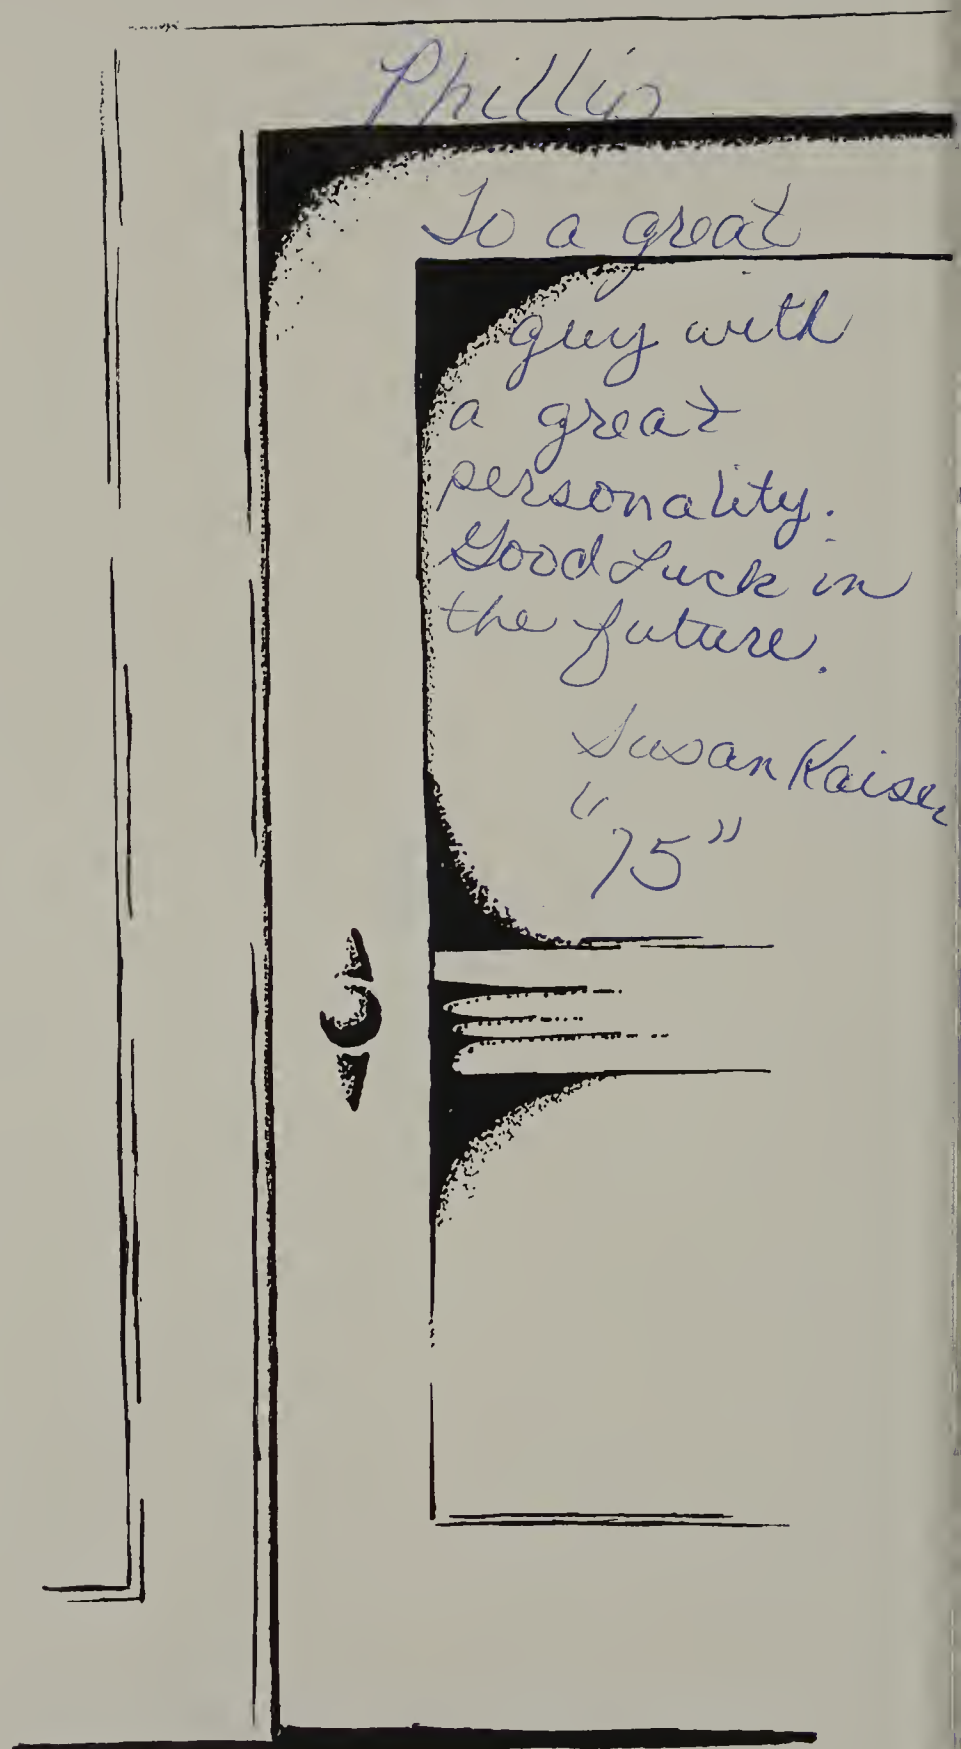 Phillip
To a great
guy with
a great
personality.
Good Luck in
the future.
Susan Kaiser
"75"